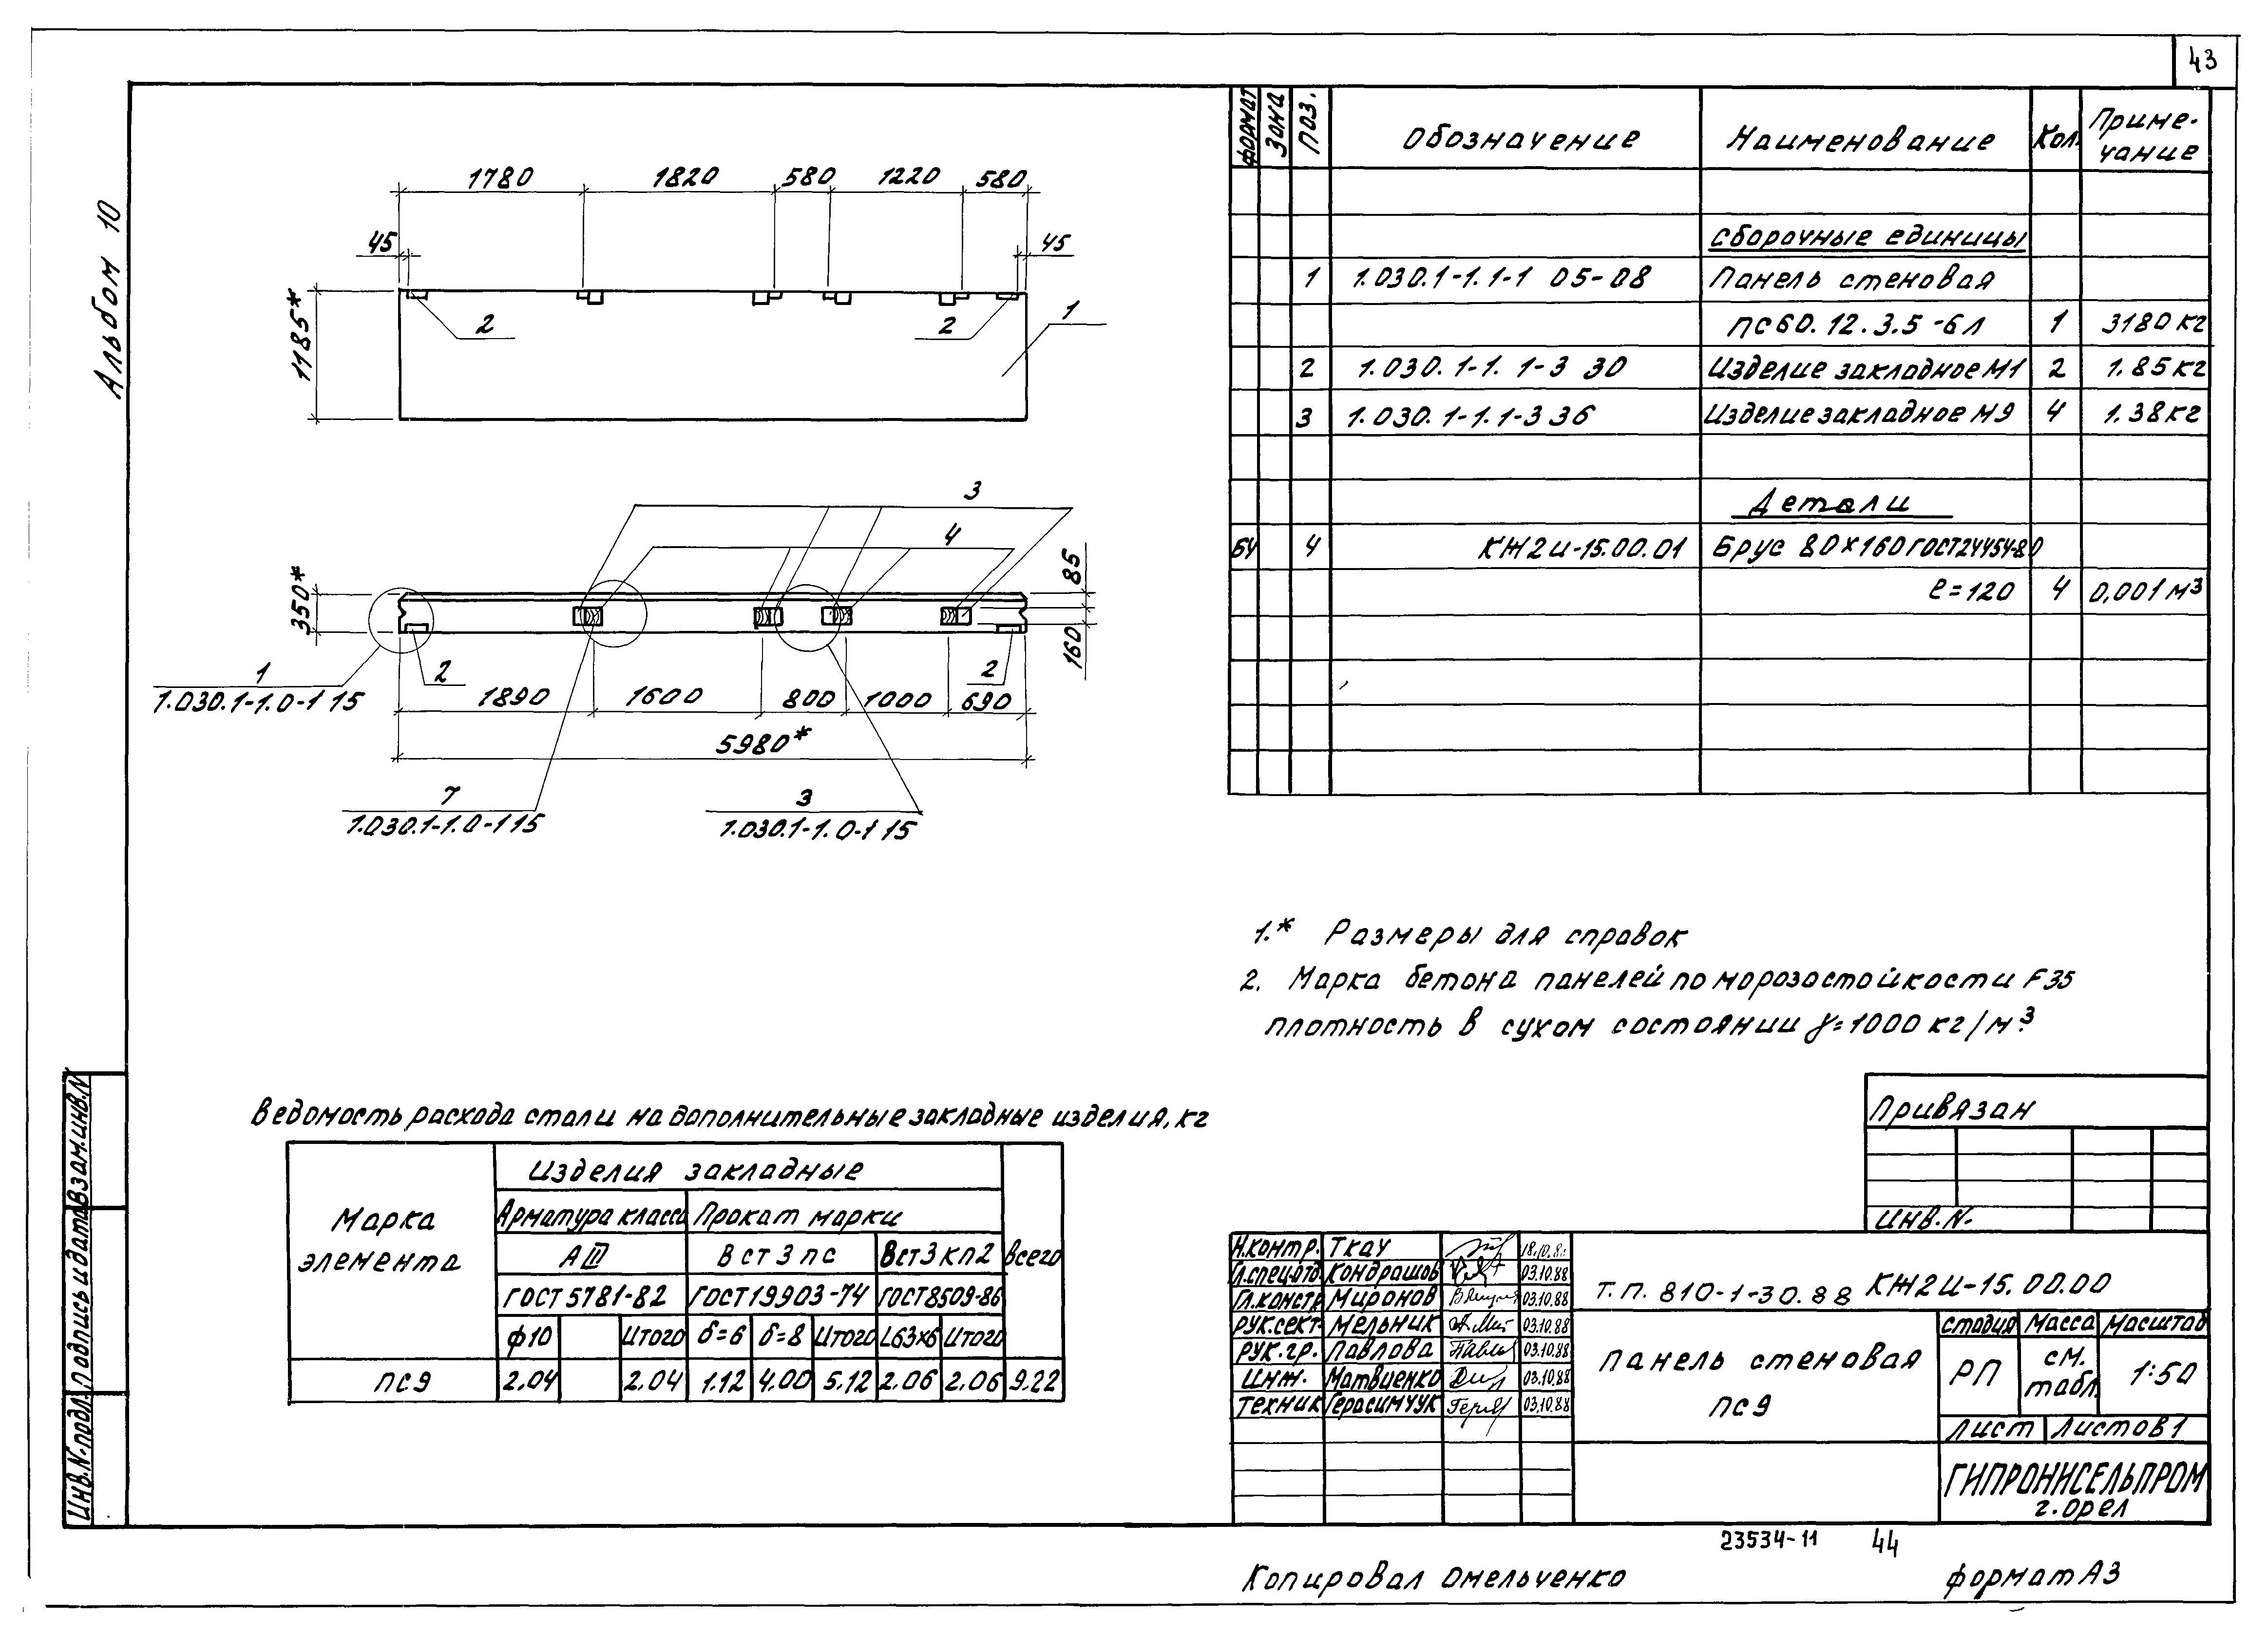 43
Альбом 10
1780 1820 580 1220 580
45 45
1185*
2 2 1
3
4
350*
85
160
1
1.030.1-1.0-1 15
2 2
1890 1600 800 1000 690
5980*
7
1.030.1-1.0-1 15
3
1.030.1-1.0-1 15
формат Зона Поз. Обозначение Наименование Кол. Приме-
чание
Сборочные единицы
1 1.030.1-1.1-1 05-08 Панель стеновая
ПС60.12.3.5-6л 1 3180 кг
2 1.030.1-1.1-3 30 Изделие закладное М1 2 1.85 кг
3 1.030.1-1.1-3 36 Изделие закладное М9 4 1.38 кг
Детали
БЧ 4 КЖ2И-15.00.01 Брус 80×160 ГОСТ 24454-80
ℓ=120 4 0,001 м³
1.* Размеры для справок
2. Марка бетона панелей по морозостойкости F35
плотность в сухом состоянии γ=1000 кг/м³
Ведомость расхода стали на дополнительные закладные изделия, кг
Марка элемента
Изделия закладные
Всего
Арматура класса Прокат марки
АIII Вст3пс Вст3кп2
ГОСТ5781-82 ГОСТ19903-74 ГОСТ8509-86
ф10 Итого б=6 б=8 Итого L63×6 Итого
ПС9 2.04 2.04 1.12 4.00 5.12 2.06 2.06 9.22
Привязан
Инв.№
Взам.инв.№
Подпись и дата
Инв.№ подл.
Н.контр. Ткач
Гл.спец.отд. Кондрашов 03.10.88
Гл.констр. Миронов 03.10.88
Рук.сект. Мельник 03.10.88
Рук.гр. Павлова 03.10.88
Инж. Матвиенко 03.10.88
Техник Герасимчук 03.10.88
Т.П. 810-1-30.88 КЖ2И-15.00.00
Панель стеновая
ПС9
Стадия Масса Масштаб
РП см. табл. 1:50
Лист Листов 1
ГИПРОНИСЕЛЬПРОМ
г. Орел
23534-11 44
Копировал Омельченко формат А3